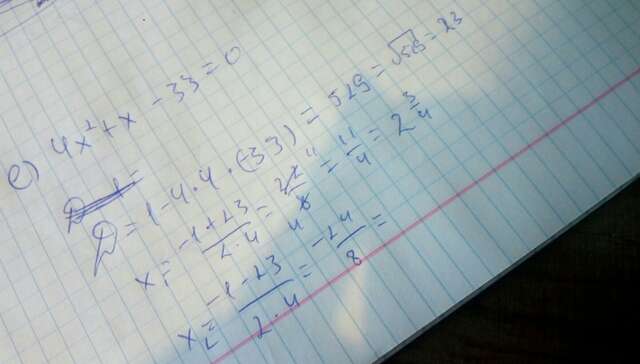 е) 4x²+x-33=0
D=1-4·4·(-33)=529=√529=23
x₁=(-1+23)/(2·4)=22/8=11/4=2 3/4
x₂=(-1-23)/(2·4)=-24/8=